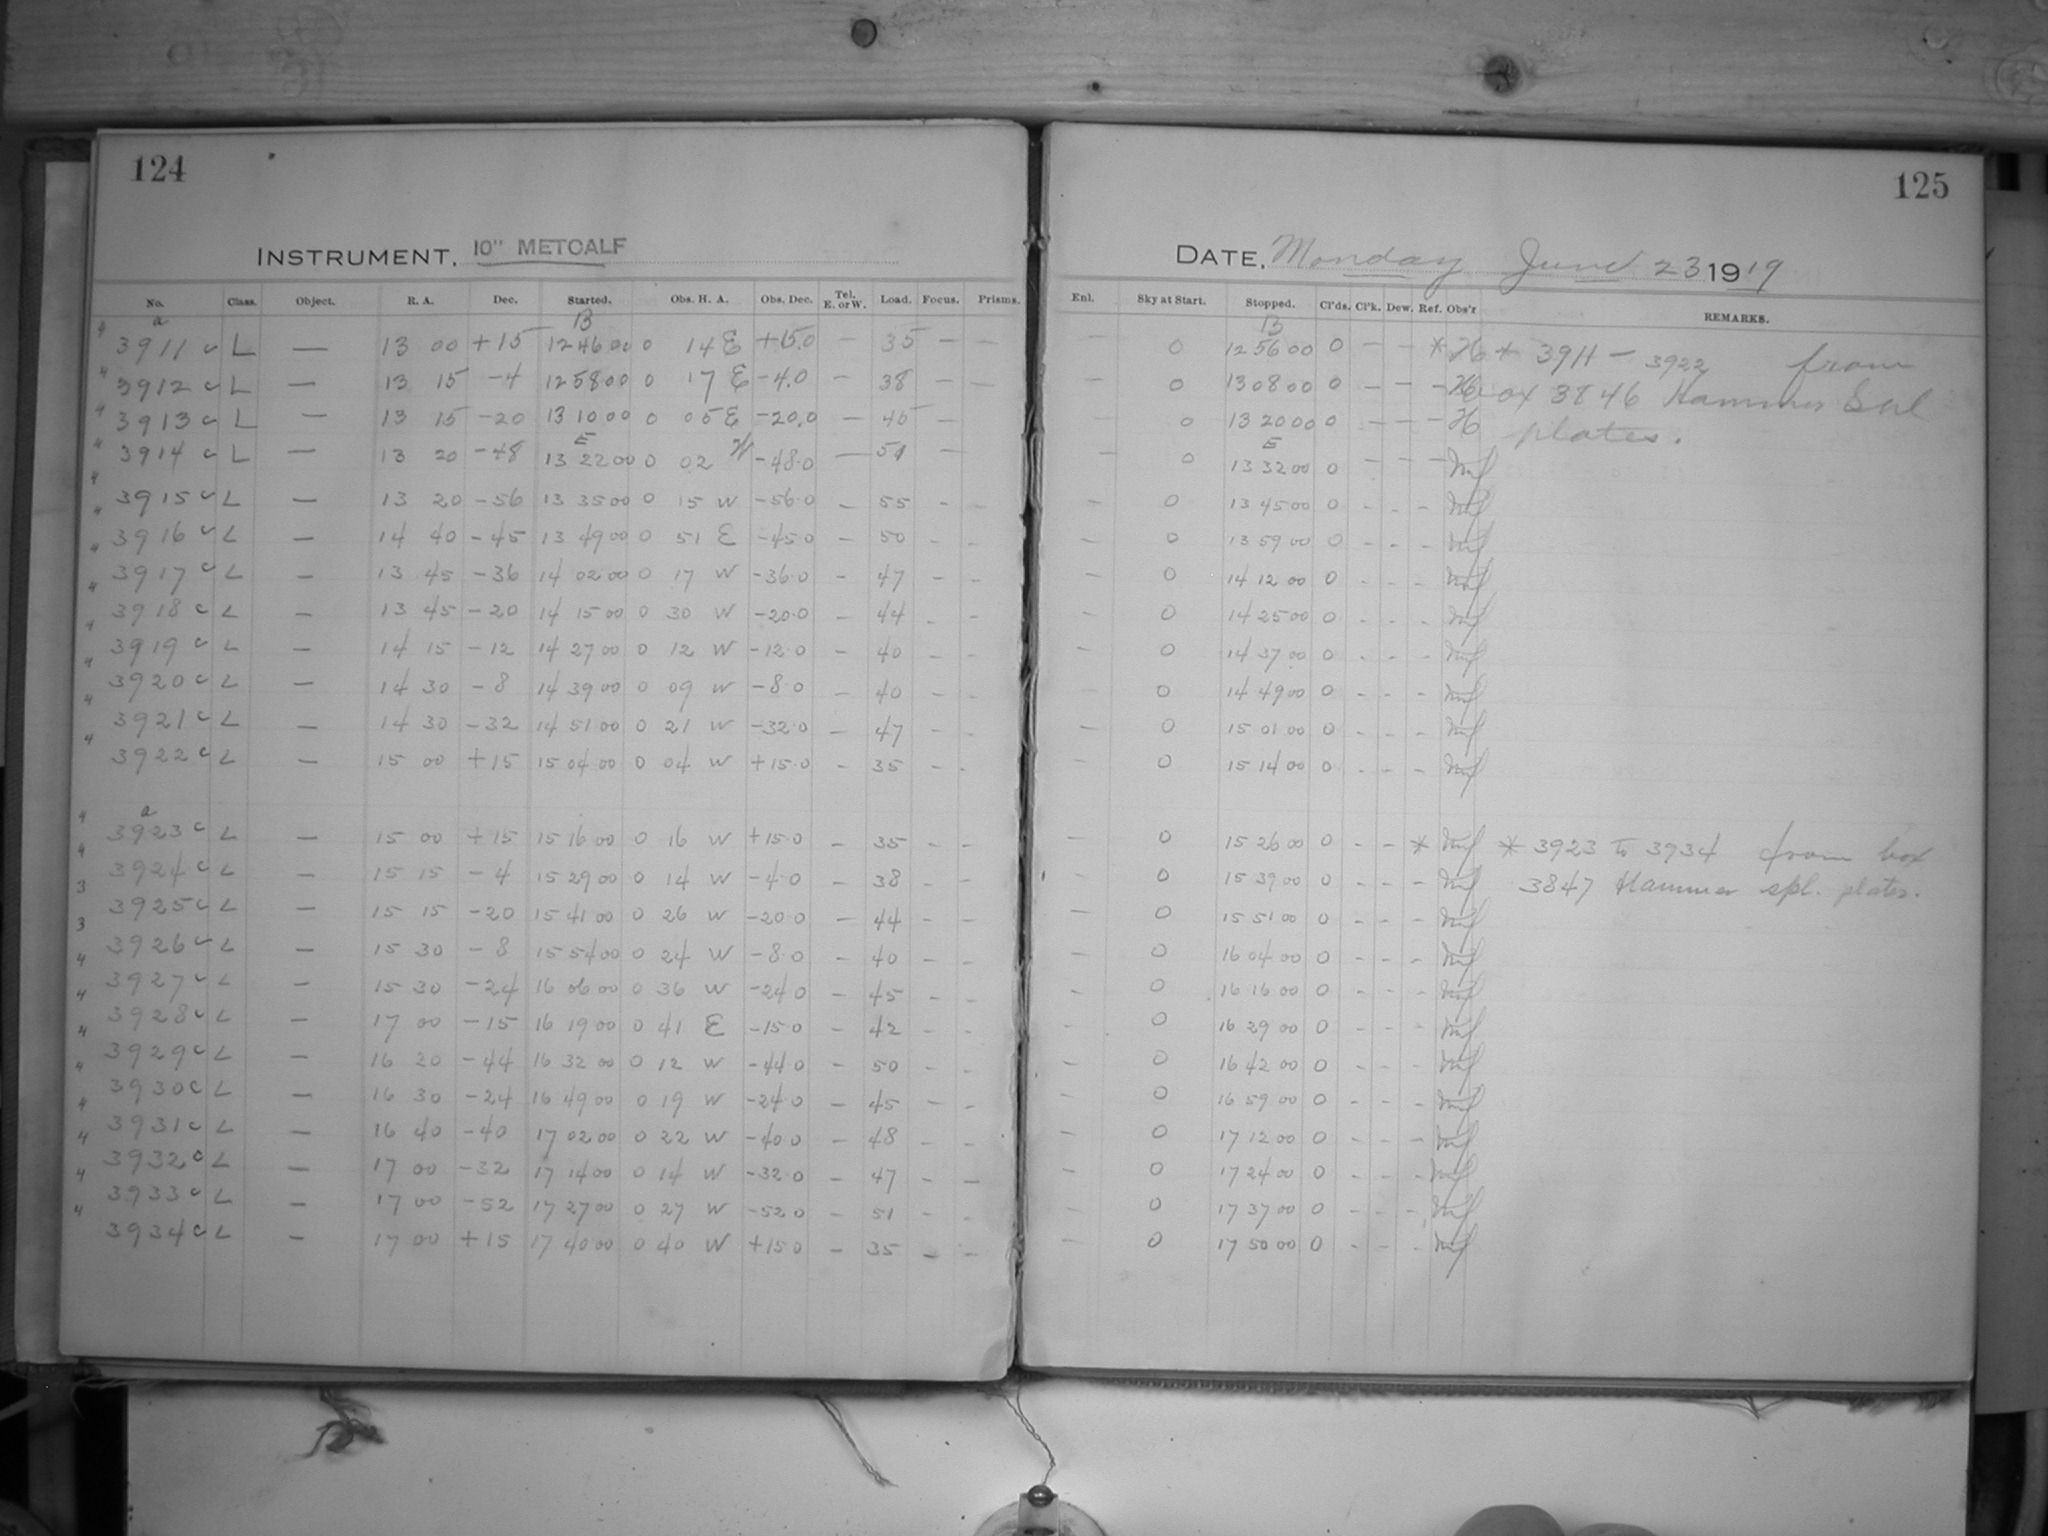 124
INSTRUMENT. 10" METCALF
No. Class. Object. R. A. Dec. Started. Obs. H. A. Obs. Dec. Tel. E. or W. Load. Focus. Prisms.
a B
4 3911 c L — 13 00 +15 12 46 00 0 14 E +15.0 — 35 — —
4 3912 c L — 13 15 -4 12 58 00 0 17 E -4.0 — 38 — —
4 3913 c L — 13 15 -20 13 10 00 0 05 E -20.0 — 45 —
E
4 3914 c L — 13 20 -48 13 22 00 0 02 W -48.0 — 51 —
4 3915 c L — 13 20 -56 13 35 00 0 15 W -56.0 - 55 - -
4 3916 c L — 14 40 -45 13 49 00 0 51 E -45.0 - 50 - -
4 3917 c L — 13 45 -36 14 02 00 0 17 W -36.0 - 47 - -
4 3918 c L — 13 45 -20 14 15 00 0 30 W -20.0 - 44 - -
4 3919 c L — 14 15 -12 14 27 00 0 12 W -12.0 - 40 - -
4 3920 c L — 14 30 -8 14 39 00 0 09 W -8.0 - 40 - -
4 3921 c L — 14 30 -32 14 51 00 0 21 W -32.0 - 47 - -
4 3922 c L — 15 00 +15 15 04 00 0 04 W +15.0 - 35 - -
a
4 3923 c L — 15 00 +15 15 16 00 0 16 W +15.0 - 35 - -
4 3924 c L — 15 15 -4 15 29 00 0 14 W -4.0 - 38 - -
3 3925 c L — 15 15 -20 15 41 00 0 26 W -20.0 - 44 - -
3 3926 c L — 15 30 -8 15 54 00 0 24 W -8.0 - 40 - -
4 3927 c L — 15 30 -24 16 06 00 0 36 W -24.0 - 45 - -
4 3928 c L — 17 00 -15 16 19 00 0 41 E -15.0 - 42 - -
4 3929 c L — 16 20 -44 16 32 00 0 12 W -44.0 - 50 - -
4 3930 c L — 16 30 -24 16 49 00 0 19 W -24.0 - 45 - -
4 3931 c L — 16 40 -40 17 02 00 0 22 W -40.0 - 48 - -
4 3932 c L — 17 00 -32 17 14 00 0 14 W -32.0 - 47 - -
4 3933 c L — 17 00 -52 17 27 00 0 27 W -52.0 - 51 - -
4 3934 c L — 17 00 +15 17 40 00 0 40 W +15.0 - 35 - -
125
DATE, Monday June 23 1919
Enl. Sky at Start. Stopped. Cl'ds. Cl'k. Dew. Ref. Obs'r REMARKS.
B
— 0 12 56 00 0 - - * H * 3911 - 3922 from
— 0 13 08 00 0 - - - H box 3846 Hammer Spl
— 0 13 20 00 0 - - - H plates.
E
— 0 13 32 00 0 - - -
— 0 13 45 00 0 - - -
— 0 13 59 00 0 - - -
— 0 14 12 00 0 - - -
— 0 14 25 00 0 - - -
— 0 14 37 00 0 - - -
0 14 49 00 0 - - -
— 0 15 01 00 0 - - -
— 0 15 14 00 0 - - -
— 0 15 26 00 0 - - * * 3923 to 3934 from box
— 0 15 39 00 0 - - - 3847 Hammer spl. plates.
— 0 15 51 00 0 - - -
— 0 16 04 00 0 - - -
— 0 16 16 00 0 - - -
— 0 16 29 00 0 - - -
— 0 16 42 00 0 - - -
— 0 16 59 00 0 - - -
— 0 17 12 00 0 - - -
— 0 17 24 00 0 - - -
— 0 17 37 00 0 - - -
— 0 17 50 00 0 - - -